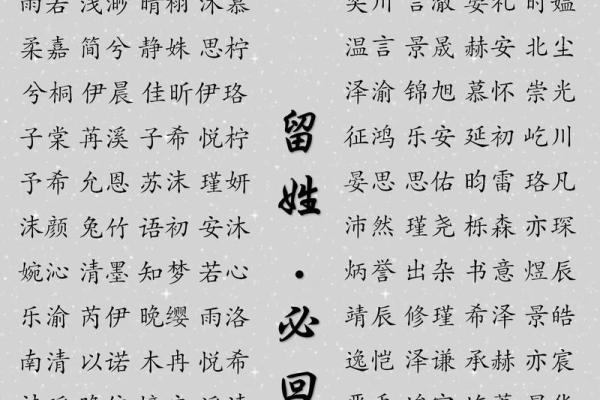 柔嘉 简兮 静姝 思柠
兮桐 伊晨 佳昕 伊珞
子棠 苒溪 子希 悦柠
予希 允恩 苏沫 瑾妍
沫颜 兔竹 语初 安沐
婉沁 清墨 知梦 若心
乐渝 芮伊 晚缨 雨洛
南清 以诺 木冉 悦希
留姓·必回
言澈 安礼 时
温言 景晟 赫安 北尘
泽渝 锦旭 慕怀 崇光
征鸿 乐安 延初 屹川
晏思 思佑 昀雷 珞凡
沛然 瑾尧 栎森 亦琛
炳誉 出杂 书意 煜辰
靖辰 修瑾 希泽 景皓
逸恺 泽谦 承赫 亦宸